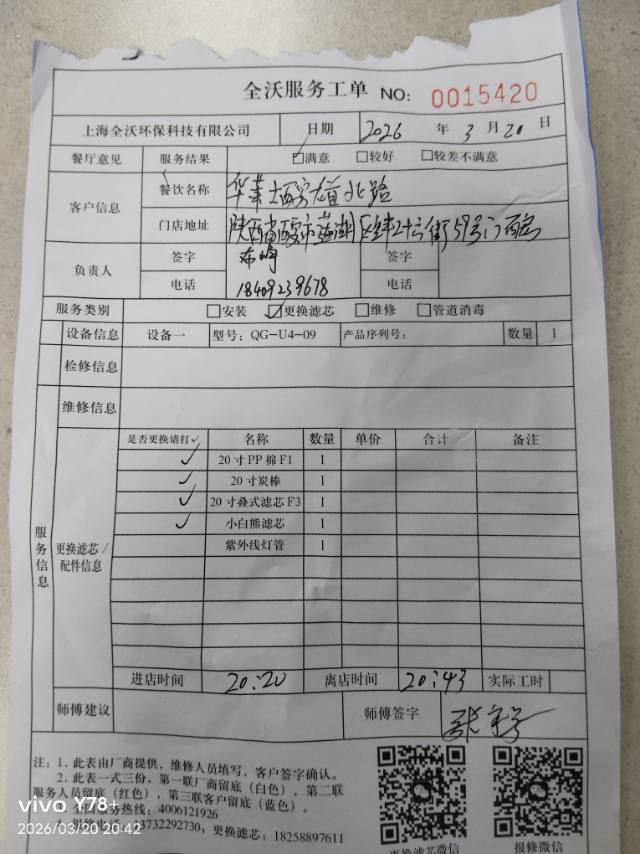 全沃服务工单 NO: 0015420
上海全沃环保科技有限公司 日期 2026 年 3 月 20 日
餐厅意见 服务结果 ☑满意 □较好 □较差不满意
客户信息 餐饮名称 华莱士西安太白北路
门店地址 陕西省西安市莲湖区 街59号门西
负责人 签字 签字
电话 18409239678 电话
服务类别 □安装 ☑更换滤芯 □维修 □管道消毒
设备信息 设备一 型号: QG-U4-09 产品序列号: 数量 1
检修信息
维修信息
服务信息
更换滤芯/配件信息
是否更换请打✓ 名称 数量 单价 合计 备注
✓ 20寸PP棉F1 1
✓ 20寸炭棒 1
✓ 20寸叠式滤芯F3 1
✓ 小白熊滤芯 1
紫外线灯管 1
进店时间 20:20 离店时间 20:43 实际工时
师傅建议 师傅签字
注: 1、此表由厂商提供, 维修人员填写, 客户签字确认。
2、此表一式三份, 第一联厂商留底(白色), 第二联
服务人员留底(红色), 第三联客户留底(蓝色)。
全国服务热线: 4006121926
13732292730, 更换滤芯: 18258897611
更换滤芯微信 报修微信
vivo Y78+
2026/03/20 20:42